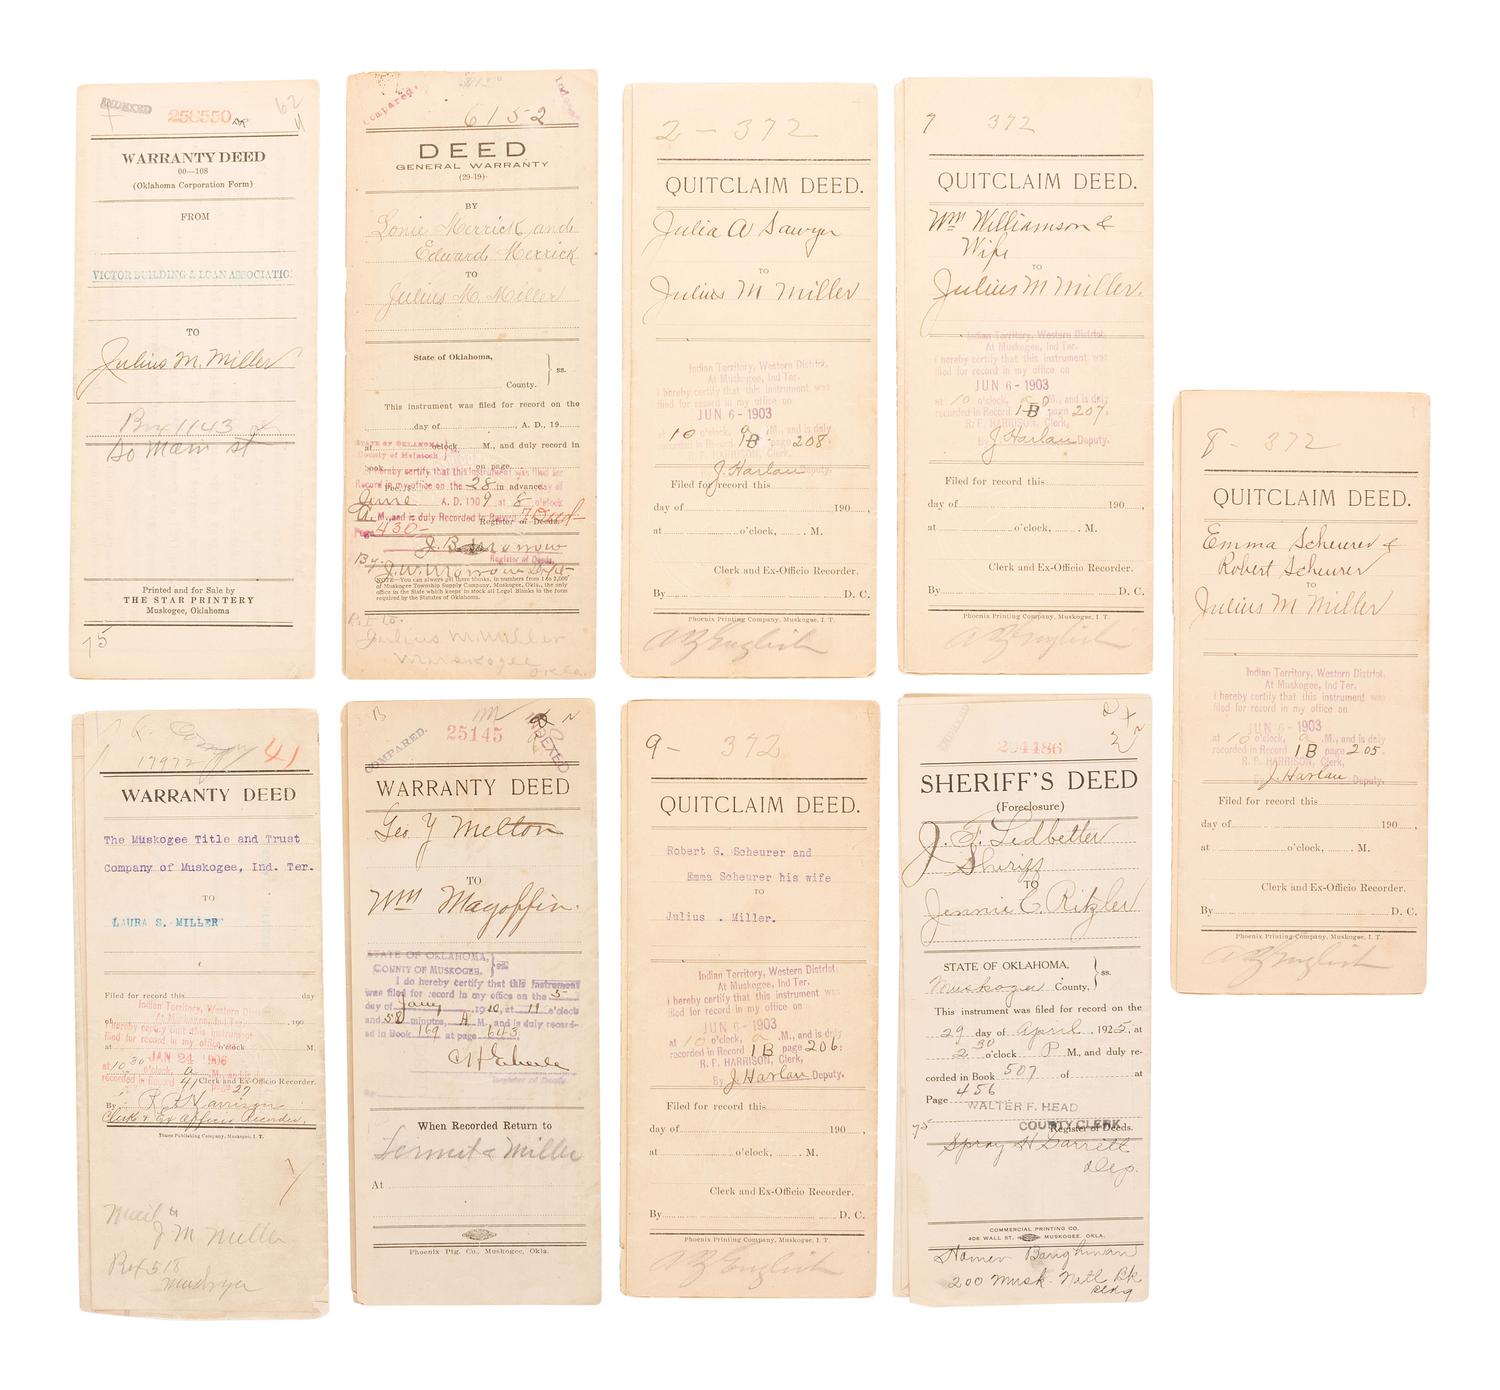 INDEXED
258550
62
WARRANTY DEED
00—108
(Oklahoma Corporation Form)
FROM
VICTOR BUILDING & LOAN ASSOCIATION
TO
Julius M. Miller
Box 1143
So Main st
Printed and for Sale by
THE STAR PRINTERY
Muskogee, Oklahoma
75
Compared.
6152
DEED
GENERAL WARRANTY
(29-19)
BY
Lonie Merrick and
Edward Merrick
TO
Julius M. Miller
State of Oklahoma,
County. ss.
This instrument was filed for record on the
day of , A. D., 19
at o'clock M., and duly record in
STATE OF OKLAHOMA
County of McIntosh
book on page
I hereby certify that this instrument was filed for
Record in my office on the 28 day of
June A. D. 1909 at 8 o'clock
A. M., and is duly Recorded in Record 7 Deed
Page 430 Register of Deeds.
J. B. Morrow
Register of Deeds
By J. W. Morrow Dept
NOTE—You can always get these blanks, in numbers from 1 to 2,000
of Muskogee Township Supply Company, Muskogee, Okla., the only
office in the State which keeps in stock all Legal Blanks to the form
required by the Statutes of Oklahoma.
Julius M. Miller
Muskogee
Okla.
2 - 372
QUITCLAIM DEED.
Julia A Sawyer
TO
Julius M Miller
Indian Territory, Western District.
At Muskogee, Ind Ter.
I hereby certify that this instrument was
filed for record in my office on
JUN 6 - 1903
at 10 o'clock, a .M., and is duly
recorded in Record 1B page 208
R. P. HARRISON, Clerk,
J. Harlan Deputy.
Filed for record this
day of 190 ,
at o'clock, . M.
Clerk and Ex-Officio Recorder.
By D. C.
Phoenix Printing Company, Muskogee, I. T.
A Z English
7 372
QUITCLAIM DEED.
Wm Williamson &
Wife
TO
Julius M Miller.
Indian Territory, Western District.
At Muskogee, Ind Ter.
I hereby certify that this instrument was
filed for record in my office on
JUN 6 - 1903
at 10 o'clock, a .M., and is duly
recorded in Record 1B page 207.
R. P. HARRISON, Clerk,
By J. Harlan Deputy.
Filed for record this
day of 190 ,
at o'clock, . M.
Clerk and Ex-Officio Recorder.
By D. C.
Phoenix Printing Company, Muskogee, I. T.
A Z English
8 - 372
QUITCLAIM DEED.
Emma Scheurer &
Robert Scheurer
TO
Julius M Miller
Indian Territory, Western District.
At Muskogee, Ind Ter.
I hereby certify that this instrument was
filed for record in my office on
JUN 6 - 1903
at 10 o'clock, a .M., and is duly
recorded in Record 1B page 205.
R. P. HARRISON, Clerk,
By J. Harlan Deputy.
Filed for record this
day of 190 ,
at o'clock, . M.
Clerk and Ex-Officio Recorder.
By D. C.
Phoenix Printing Company, Muskogee, I. T.
A Z English
17972 41
WARRANTY DEED
The Muskogee Title and Trust
Company of Muskogee, Ind. Ter.
TO
LAURA S. MILLER
Filed for record this day
Indian Territory, Western District
of , 190
At Muskogee, Ind Ter.
I hereby certify that this instrument was
filed for record in my office on
at o'clock M.
JAN 24 1906
at 10 30 o'clock, a M., and is duly
recorded in Record 41 page 27
Clerk and Ex-Officio Recorder.
By R. P. Harrison
Clerk & Ex Officio Recorder.
Times Publishing Company, Muskogee, I. T.
Mail to
J M Miller
Box 518
B
COMPARED.
25145
INDEXED
WARRANTY DEED
Geo. Y Melton
TO
Wm Magoffin.
STATE OF OKLAHOMA,
COUNTY OF MUSKOGEE, ss
I do hereby certify that this instrument
was filed for record in my office on the 5
day of Jany 1910, at 11 o'clock
and 58 minutes, A M., and is duly record-
ed in Book 169 at page 643
Register of Deeds.
When Recorded Return to
& Miller
At
Phoenix Ptg. Co., Muskogee, Okla.
9 - 372
QUITCLAIM DEED.
Robert G. Scheurer and
Emma Scheurer his wife
TO
Julius . Miller.
Indian Territory, Western District.
At Muskogee, Ind Ter.
I hereby certify that this instrument was
filed for record in my office on
JUN 6 - 1903
at 10 o'clock, a .M., and is duly
recorded in Record 1B page 206.
R. P. HARRISON, Clerk,
By J. Harlan Deputy.
Filed for record this
day of 190 ,
at o'clock, . M.
Clerk and Ex-Officio Recorder.
By D. C.
Phoenix Printing Company, Muskogee, I. T.
A Z English
INDEXED
204486
SHERIFF'S DEED
(Foreclosure)
J. F. Ledbetter
Sheriff
TO
Jennie C. Ritzler
STATE OF OKLAHOMA,
Muskogee County, ss.
This instrument was filed for record on the
29 day of April, 1925, at
2 30 o'clock P M., and duly re-
corded in Book 507 of at
Page 456
WALTER F. HEAD
COUNTY CLERK Register of Deeds.
75
Spray H Garrett
Dep.
COMMERCIAL PRINTING CO.
408 WALL ST. MUSKOGEE, OKLA.
Homer Baughman
200 Musk. Natl Bk
Bldg